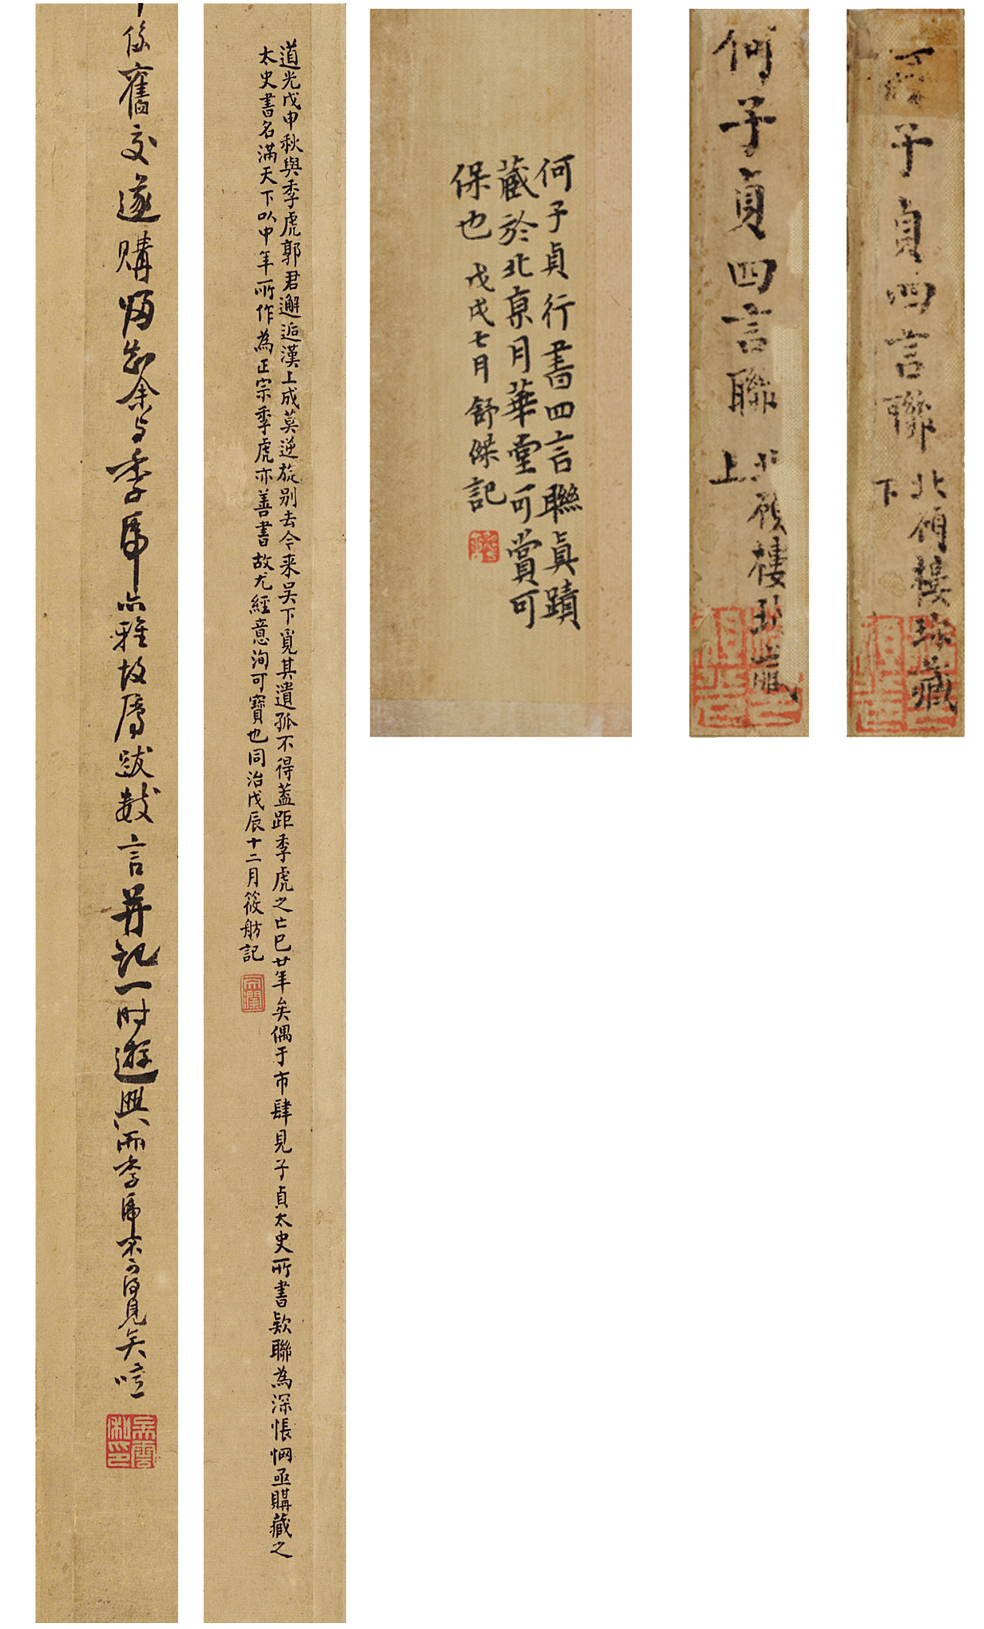 何子貞四言聯 北頎樓珍藏
下
何子貞四言聯 北頎樓珍藏
上
何子貞行書四言聯真蹟
藏於北京月華堂可賞可
保也 戊戌七月舒傑記
道光戊申秋與季虎郭君邂逅漢上成莫逆旋別去今來吳下覓其遺孤不得蓋距季虎之亡已廿年矣偶于市肆見子貞太史所書款聯為深悵惘亟購藏之
太史書名滿天下以中年所作為正宗季虎亦善書故尤經意洵可寶也同治戊辰十二月筱舫記
係舊交遂購 余與季虎亦雅故屬跋數言并記一時遊興而季虎不可得見矣噫
吳雲私印